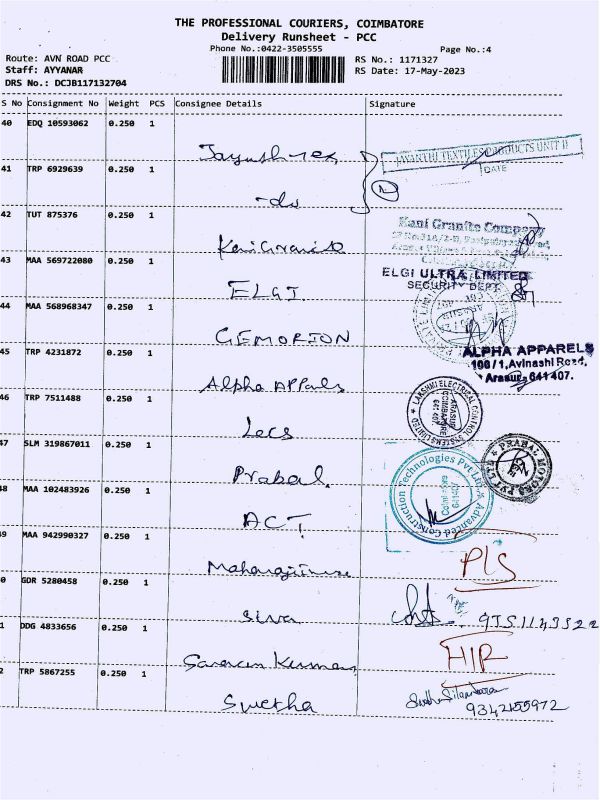 THE PROFESSIONAL COURIERS, COIMBATORE
Delivery Runsheet - PCC
Phone No.:0422-3505555
Page No.:4
Route: AVN ROAD PCC
RS No.: 1171327
Staff: AYYANAR
RS Date: 17-May-2023
DRS No.: DCJB117132704
S No Consignment No Weight PCS Consignee Details Signature
40 EDQ 10593062 0.250 1
JAYANTHI TEXTILES PRODUCTS UNIT II
DATE
41 TRP 6929639 0.250 1
-do
42 TUT 875376 0.250 1
Kani Granite Company
43 MAA 569722080 0.250 1
ELGI ULTRA LIMITED
SECURITY DEPT.
ELGI
44 MAA 568968347 0.250 1
GEMORION
45 TRP 4231872 0.250 1
ALPHA APPARELS
100/1,Avinashi Road,
Arasur, 641 407.
Alpha Appals
46 TRP 7511488 0.250 1
LAKSHMI ELECTRICAL CONTROL SYSTEMS LIMITED
ARASUR
COIMBATORE
641 407
Lecs
47 SLM 319867011 0.250 1
PRABAL MOTORS PVT LTD
Prabal
48 MAA 102483926 0.250 1
Advanced Construction Technologies Pvt Ltd
Coimbatore
641407
ACT
49 MAA 942990327 0.250 1
PLS
0 GDR 5280458 0.250 1
Siva
1 DDG 4833656 0.250 1
HIR
Saravan Kumar
2 TRP 5867255 0.250 1
Swetha
9342155972